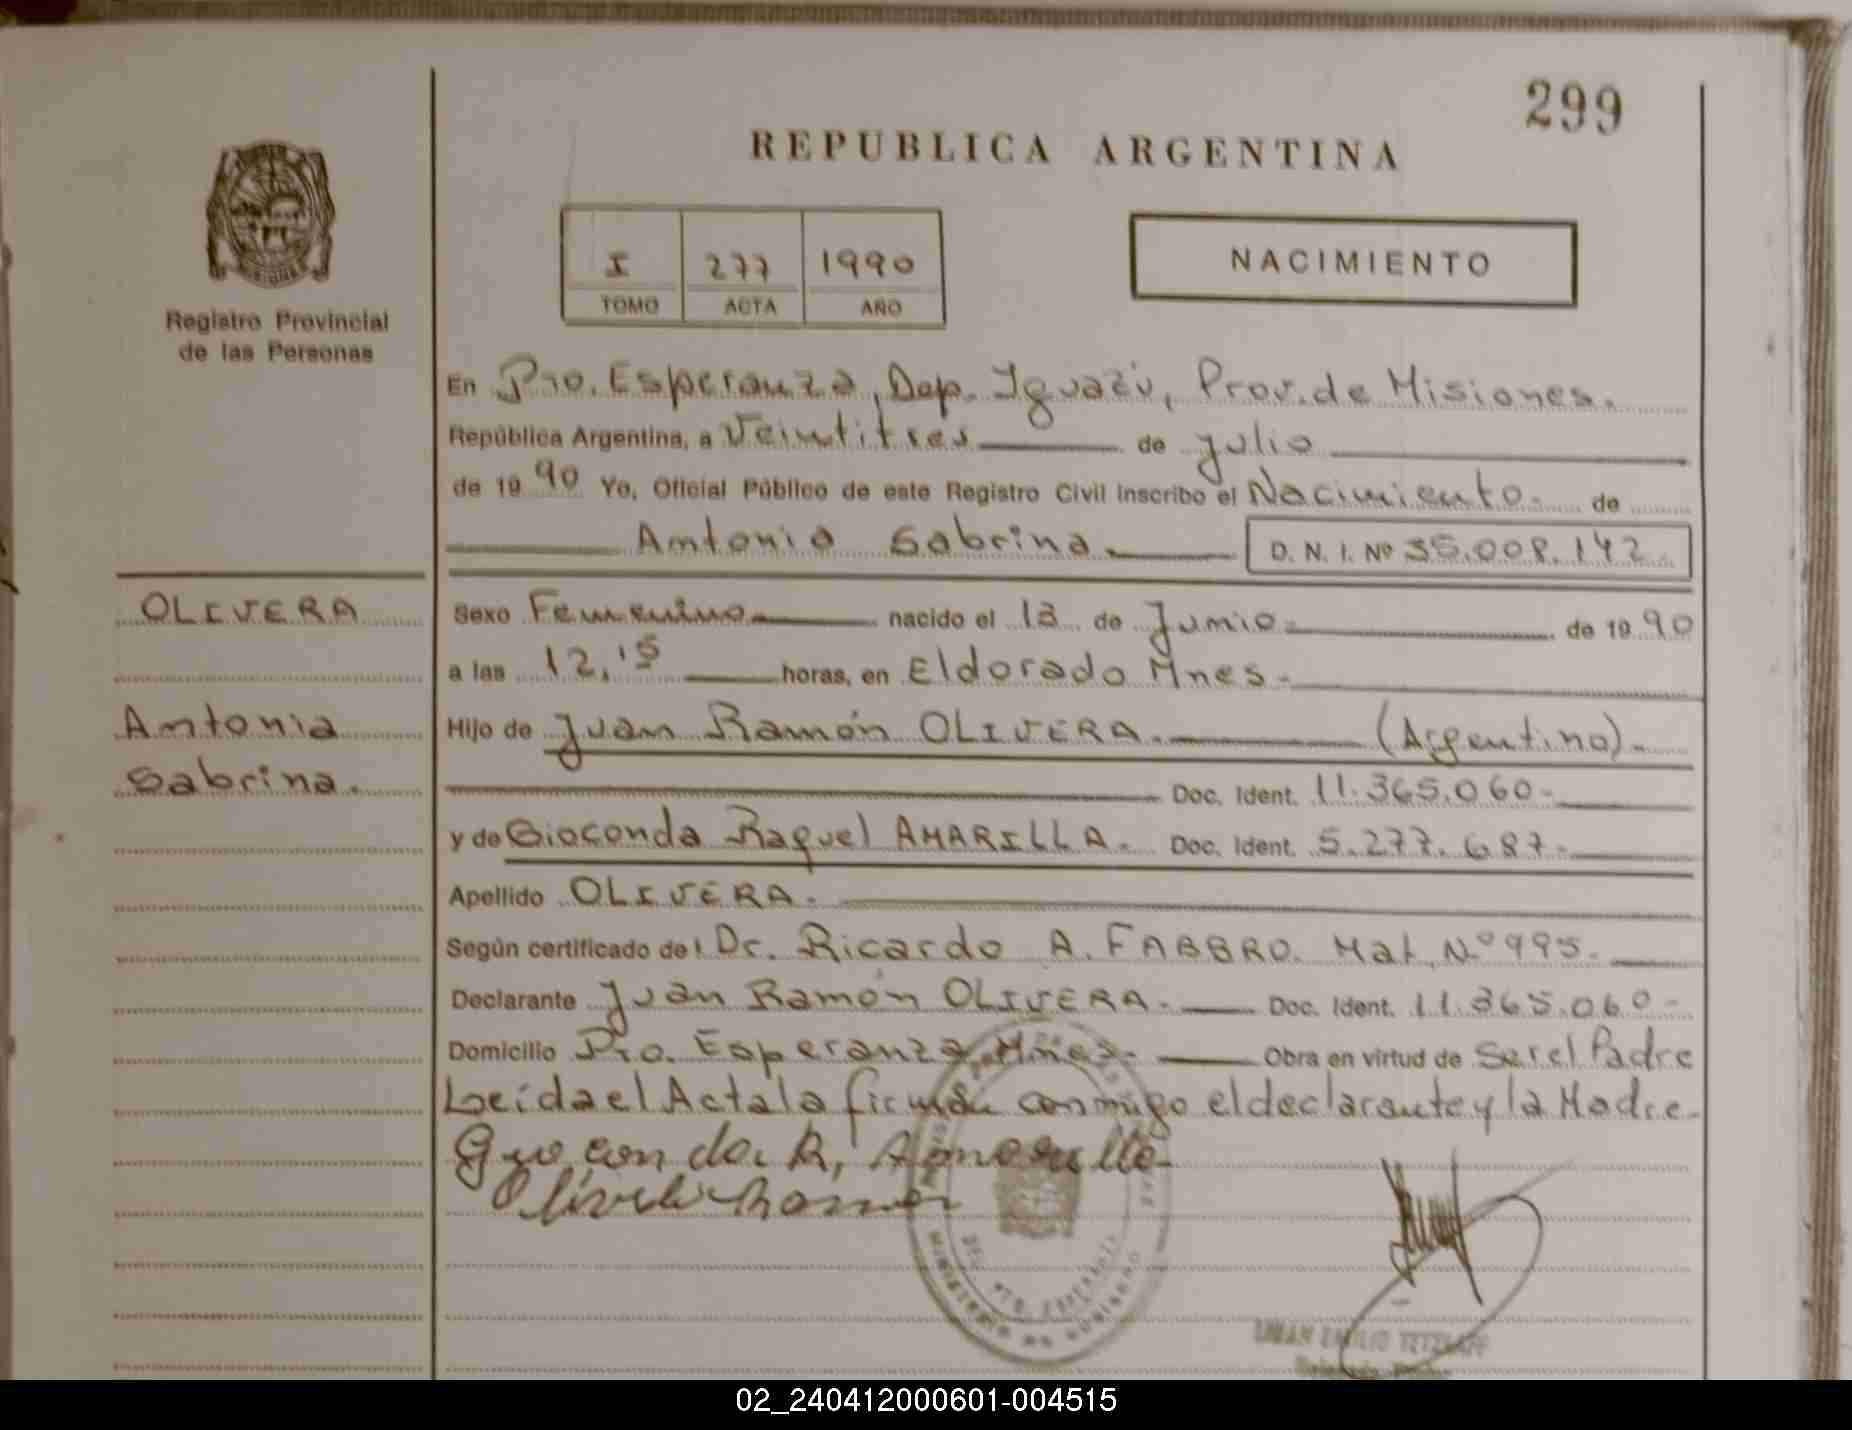 299
REPUBLICA ARGENTINA
I 277 1990
TOMO ACTA AÑO
NACIMIENTO
Registro Provincial
de las Personas
En Pto. Esperanza, Dep. Iguazú, Prov. de Misiones.
República Argentina, a Veintitres de julio
de 1990 Yo, Oficial Público de este Registro Civil inscribo el Nacimiento. de
Antonia Sabrina. D. N. I. Nº 35.008.142.
OLIVERA
Sexo Femenino nacido el 13 de Junio de 1990
a las 12,15 horas, en Eldorado Mnes.
Antonia
Sabrina.
Hijo de Juan Ramón OLIVERA. (Argentino).
Doc. Ident. 11.365.060.
y de Gioconda Raquel AMARILLA. Doc. Ident. 5.277.687.
Apellido OLIVERA.
Según certificado de: Dr. Ricardo A. FABBRO. Mat. Nº 995.
Declarante Juan Ramón OLIVERA. Doc. Ident. 11.365.060-
Domicilio Pto. Esperanza Mnes. Obra en virtud de Ser el Padre
Leida el Acta la firman conmigo el declarante y la Madre.
MINISTERIO DE GOBIERNO
02_240412000601-004515